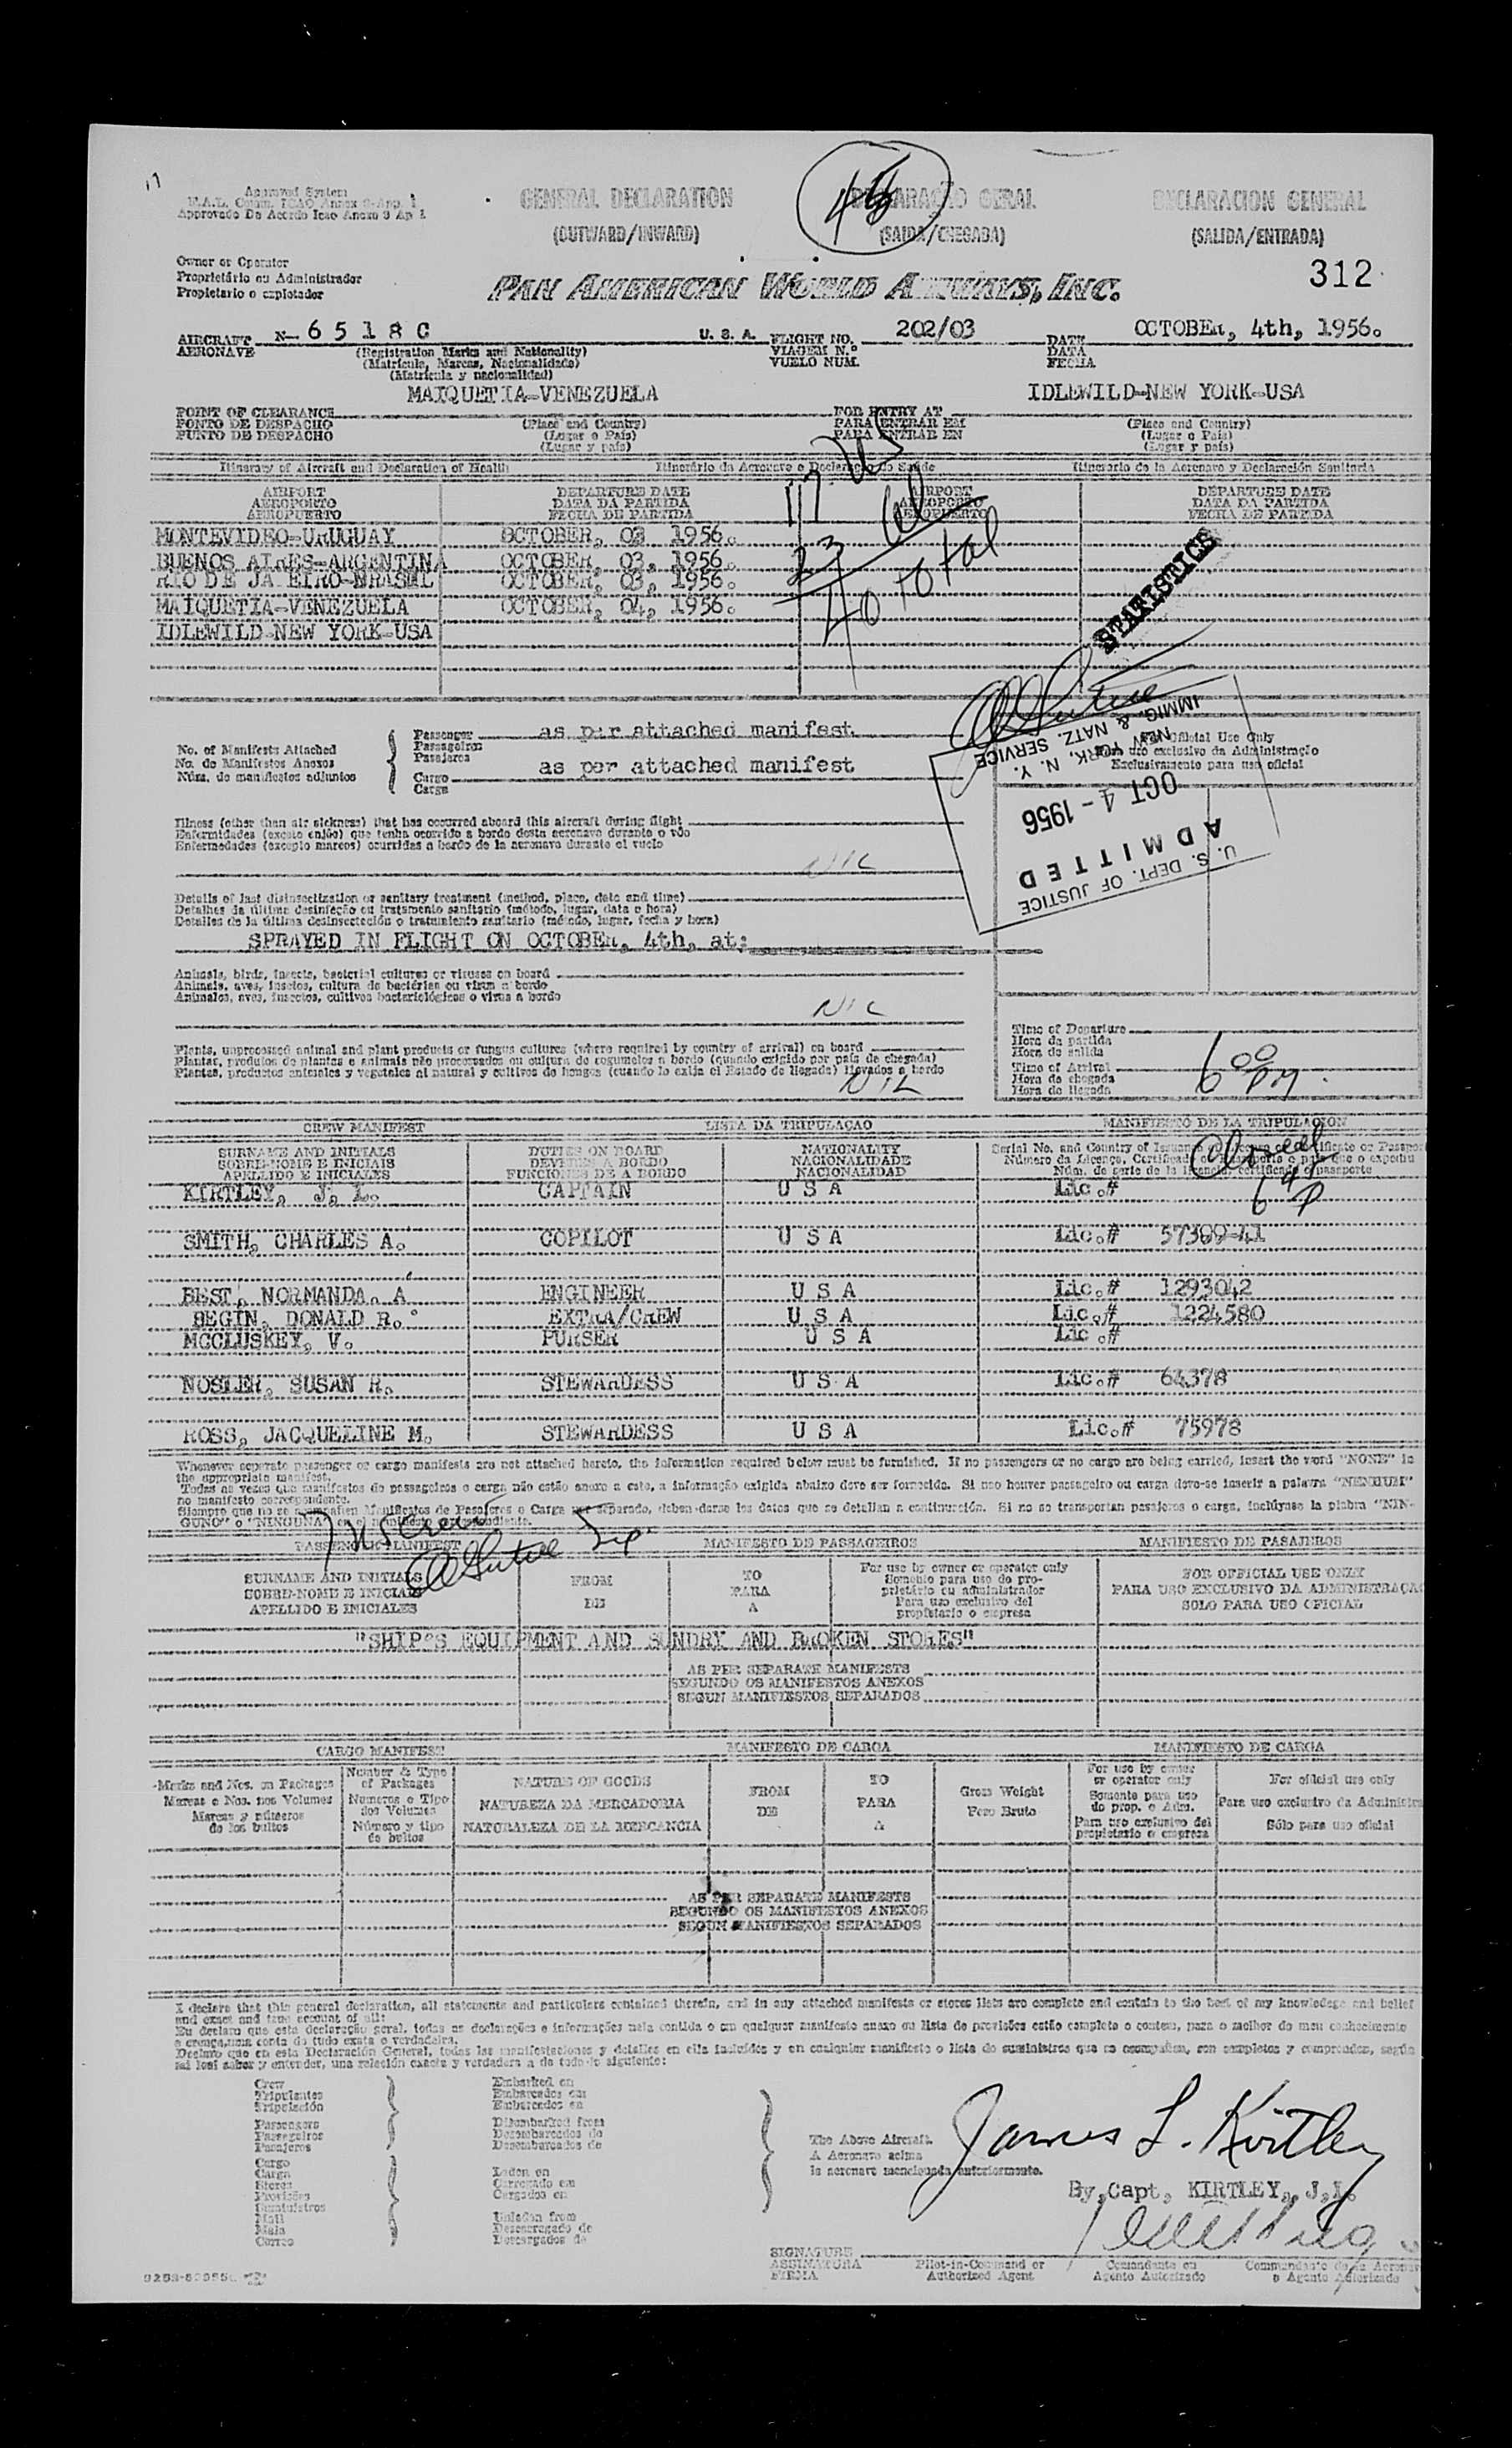 Approved System
M.A.L. Comm. ICAO Annex 9-App. 1
Approvado De Acordo Icao Anexo 9 Ap 1
GENERAL DECLARATION
(OUTWARD/INWARD)
DECLARAÇÃO GERAL
(SAIDA/CHEGADA)
DECLARACION GENERAL
(SALIDA/ENTRADA)
46
312
Owner or Operator
Proprietário ou Administrador
Propietario o explotador
PAN AMERICAN WORLD AIRWAYS, INC.
AIRCRAFT N- 6 5 1 8 C U. S. A. FLIGHT NO. 202/03 DATE OCTOBER, 4th, 1956.
AERONAVE (Registration Marks and Nationality) VIAGEM N.º DATA
(Matrícula, Marcas, Nacionalidade) VUELO NUM. FECHA
(Matrícula y nacionalidad)
MAIQUETIA-VENEZUELA IDLEWILD-NEW YORK-USA
POINT OF CLEARANCE (Place and Country) FOR ENTRY AT (Place and Country)
PONTO DE DESPACHO (Lugar o País) PARA ENTRAR EM (Lugar o País)
PUNTO DE DESPACHO (Lugar y país) PARA ENTRAR EN (Lugar y país)
Itinerary of Aircraft and Declaration of Health Itinerário da Aeronave e Declaração de Saúde Itinerario de la Aeronave y Declaración Sanitaria
AIRPORT DEPARTURE DATE AIRPORT DEPARTURE DATE
AEROPORTO DATA DA PARTIDA AEROPORTO DATA DA PARTIDA
AEROPUERTO FECHA DE PARTIDA AEROPUERTO FECHA DE PARTIDA
MONTEVIDEO-URUGUAY OCTOBER, 03 1956.
BUENOS AIRES-ARGENTINA OCTOBER, 03, 1956.
RIO DE JA EIRO-BRASIL OCTOBER, 03, 1956.
MAIQUETIA-VENEZUELA OCTOBER, 04, 1956.
IDLEWILD-NEW YORK-USA
17 US
23 al
40 total
STATISTICS
No. of Manifests Attached
No. de Manifestos Anexos
Núm. de manifiestos adjuntos
Passenger as per attached manifest
Passageiros
Pasajeros
Cargo as per attached manifest
Carga
For Official Use Only
Para uso exclusivo da Administração
Exclusivamente para uso oficial
U. S. DEPT. OF JUSTICE
ADMITTED
OCT 4 - 1956
NEW YORK, N. Y.
IMMIG. & NATZ. SERVICE
Illness (other than air sickness) that has occurred aboard this aircraft during flight
Enfermidades (exceto enjôo) que tenha ocorrido a bordo desta aeronave durante o vôo
Enfermedades (excepto mareos) ocurridas a bordo de la aeronave durante el vuelo
NIL
Details of last disinsectization or sanitary treatment (method, place, date and time)
Detalhes da última desinfeção ou tratamento sanitario (método, lugar, data e hora)
Detalles de la última desinsectación o tratamiento sanitario (método, lugar, fecha y hora)
SPRAYED IN FLIGHT ON OCTOBER, 4th, at:
Animals, birds, insects, bacterial cultures or viruses on board
Animais, aves, insetos, cultura de bactérias ou virus a bordo
Animales, aves, insectos, cultivos bacteriológicos o virus a bordo
NIL
Plants, unprocessed animal and plant products or fungus cultures (where required by country of arrival) on board
Plantas, produtos de plantas e animais não processados ou cultura de cogumelos a bordo (quando exigido por país de chegada)
Plantas, productos animales y vegetales al natural y cultivos de hongos (cuando lo exija el Estado de llegada) llevados a bordo
NIL
Time of Departure
Hora da partida
Hora de salida
Time of Arrival
Hora de chegada
Hora de llegada
6 00 PM
CREW MANIFEST LISTA DA TRIPULAÇAO MANIFIESTO DE LA TRIPULACION
SURNAME AND INITIALS DUTIES ON BOARD NATIONALITY Serial No. and Country of Issuance of License, Certificate or Passport
SOBRE-NOME E INICIAIS DEVERES A BORDO NACIONALIDADE
APELLIDO E INICIALES FUNCIONES DE A BORDO NACIONALIDAD Núm. de serie de la licencia, certificado o pasaporte
KIRTLEY, J. L. CAPTAIN U S A Lic.#
SMITH, CHARLES A. COPILOT U S A Lic.# 57369-41
BEST, NORMANDA. A ENGINEER U S A Lic.# 1293042
BEGIN, DONALD R. EXTRA/CREW U S A Lic.# 1224580
MCCLUSKEY, V. PURSER U S A Lic.#
NOSLER, SUSAN R. STEWARDESS U S A Lic.# 64378
ROSS, JACQUELINE M. STEWARDESS U S A Lic.# 75978
Whenever separate passenger or cargo manifests are not attached hereto, the information required below must be furnished. If no passengers or no cargo are being carried, insert the word "NONE" in
the appropriate manifest.
Todas as vezes que manifestos de passageiros e carga não estão anexo a este, a informação exigida abaixo deve ser fornecida. Si nao houver passageiro ou carga deve-se inserir a palavra "NENHUM"
no manifesto correspondente.
Siempre que no se acompañen Manifiestos de Pasajeros o Carga por separado, deben darse los datos que se detallan a continuación. Si no se transportan pasajeros o carga, inclúyase la plabra "NIN-
GUNO" o "NINGUNA" en el manifiesto correspondiente.
7 US Crew
PASSENGER MANIFEST MANIFESTO DE PASSAGEIROS MANIFIESTO DE PASAJEROS
SURNAME AND INITIALS FROM TO For use by owner or operator only FOR OFFICIAL USE ONLY
SOBRE-NOME E INICIAIS DE PARA Somente para uso do proprietário ou administrador PARA USO EXCLUSIVO DA ADMINISTRAÇAO
APELLIDO E INICIALES A Para uso exclusivo del propietario o empresa SOLO PARA USO OFICIAL
"SHIP'S EQUIPMENT AND SUNDRY AND BROKEN STORES"
AS PER SEPARATE MANIFESTS
SEGUNDO OS MANIFESTOS ANEXOS
SEGUN MANIFIESTOS SEPARADOS
CARGO MANIFEST MANIFESTO DE CARGA MANIFIESTO DE CARGA
Marks and Nos. on Packages
Marcas e Nos. nos Volumes
Marcas y números
de los bultos
Number & Type
of Packages
Numeros e Tipo
dos Volumes
Número y tipo
de bultos
NATURE OF GOODS
NATUREZA DA MERCADORIA
NATURALEZA DE LA MERCANCIA
FROM
DE
TO
PARA
A
Gross Weight
Peso Bruto
For use by owner
or operator only
Somente para uso
do prop. o Adm.
Para uso exclusivo del
propietario o empresa
For official use only
Para uso exclusivo da Administra
Sólo para uso oficial
AS PER SEPARATE MANIFESTS
SEGUNDO OS MANIFESTOS ANEXOS
SEGUN MANIFIESTOS SEPARADOS
I declare that this general declaration, all statements and particulars contained therein, and in any attached manifests or stores lists are complete and contain to the best of my knowledge and belief
and exact and true account of all:
Eu declaro que esta declaração geral, todas as declarações e informações nela contida o em qualquer manifesto anexo ou lista de provisões estão completo e contem, para o melhor do meu conhecimento
e crença, uma conta de tudo exata e verdadeira.
Declaro que en esta Declaración General, todas las manifestaciones y detalles en ella incluídos y en cualquier manifiesto o lista de suministros que se acompañan, son completos y comprenden, según
mi leal saber y entender, una relación exacta y verdadera a de todo lo siguiente:
Crew
Tripulantes
Tripulación
Passengers
Passageiros
Pasajeros
Cargo
Carga
Stores
Provisões
Suministros
Mail
Mala
Correo
Embarked on
Embarcados em
Embarcados en
Disembarked from
Desembarcados de
Desembarcados de
Laden on
Carregado em
Cargados en
Unladen from
Descarregado de
Descargados de
The Above Aircraft.
A Aeronave acima
la aeronave mencionada anteriormente.
James L. Kirtley
By, Capt, KIRTLEY, J.L.
SIGNATURE
ASSINATURA
FIRMA
Pilot-in-Command or
Authorized Agent
Comandante ou
Agente Autorizado
Commandante de la Aeronave
o Agente Autorizado